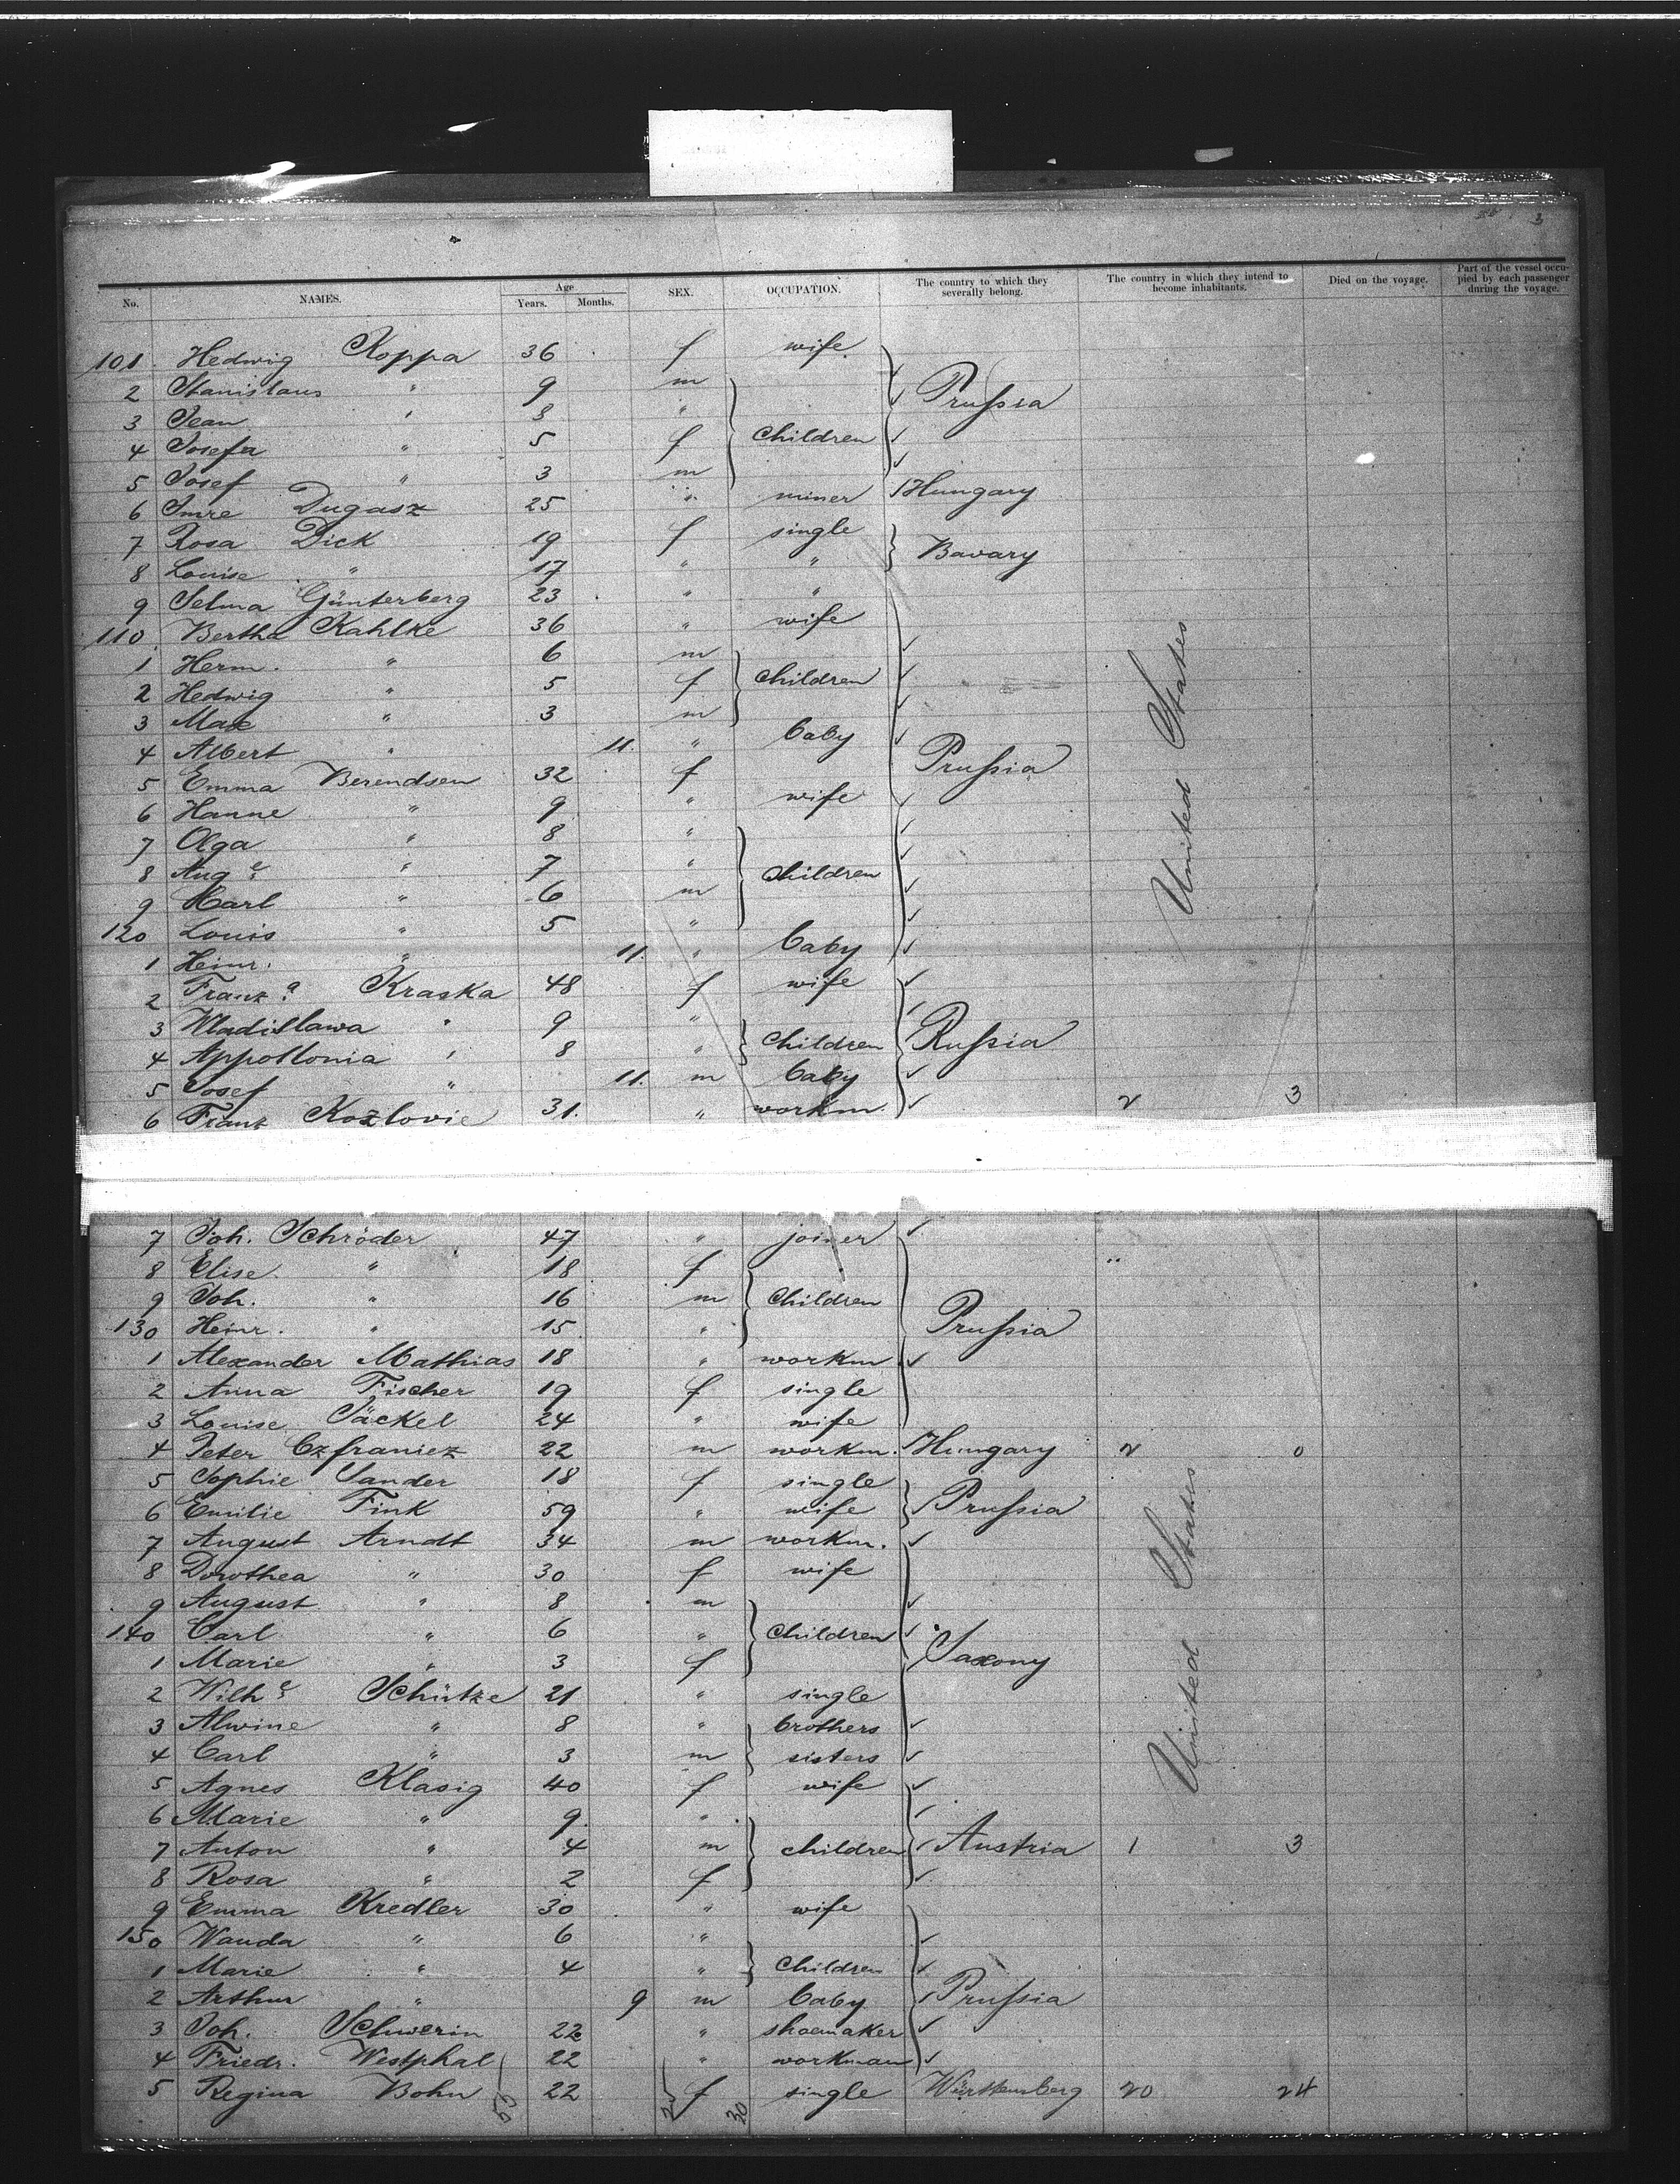 3
No. NAMES. Age Years. Months. SEX. OCCUPATION. The country to which they severally belong. The country in which they intend to become inhabitants. Died on the voyage. Part of the vessel occupied by each passenger during the voyage.
101 Hedwig Koppa 36 f wife
2 Stanislaus " 9 m Prussia
3 Jean " 8 "
4 Josefa " 5 f children
5 Josef " 3 m
6 Imre Dugasz 25 " miner Hungary
7 Rosa Dick 19 f single Bavary
8 Louise " 17 " "
9 Selma Günterberg 23 " "
110 Bertha Kahlke 36 " wife
1 Herm. " 6 m
2 Hedwig " 5 f children
3 Max " 3 m
4 Albert " 11. " baby Prussia
5 Emma Berendsen 32 f wife
6 Hanne " 9 "
7 Olga " 8 "
8 Auge " 7 " children
9 Karl " 6 m
120 Louis " 5 "
1 Heinr. " 11. " baby
United States
2 Franza Kraska 48 f wife
3 Wladislawa " 9 " children Russia
4 Appollonia " 8 "
5 Josef " 11. m baby
6 Franz Kozlovie 31. " workm. 2 3
7 Joh. Schröder 47 " joiner
8 Elise " 18 f
9 Joh. " 16 m children
130 Heinr. " 15 " Prussia
1 Alexander Mathias 18 " workm.
2 Anna Fischer 19 f single
3 Louise Jäckel 24 " wife
4 Peter Czfraniez 22 m workm. Hungary 2 0
5 Sophie Sander 18 f single
6 Emilie Fink 59 " wife Prussia
7 August Arndt 34 m workm.
8 Dorothea " 30 f wife
9 August " 8 m
140 Carl " 6 " children
1 Marie " 3 f Saxony
2 Wilhe Schütze 21 " single
3 Alwine " 8 " brothers
4 Carl " 3 m sisters
United States
5 Agnes Klasig 40 f wife
6 Marie " 9 "
7 Anton " 4 m children Austria 1 3
8 Rosa " 2 f
9 Emma Kredler 30 " wife
150 Wanda " 6 "
1 Marie " 4 " children
2 Arthur " 9 m baby Prussia
3 Joh. Schwerin 22 " shoemaker
4 Friedr. Westphal 22 " workman
5 Regina Bohn 22 f single Württemberg 20 24
55 25 30